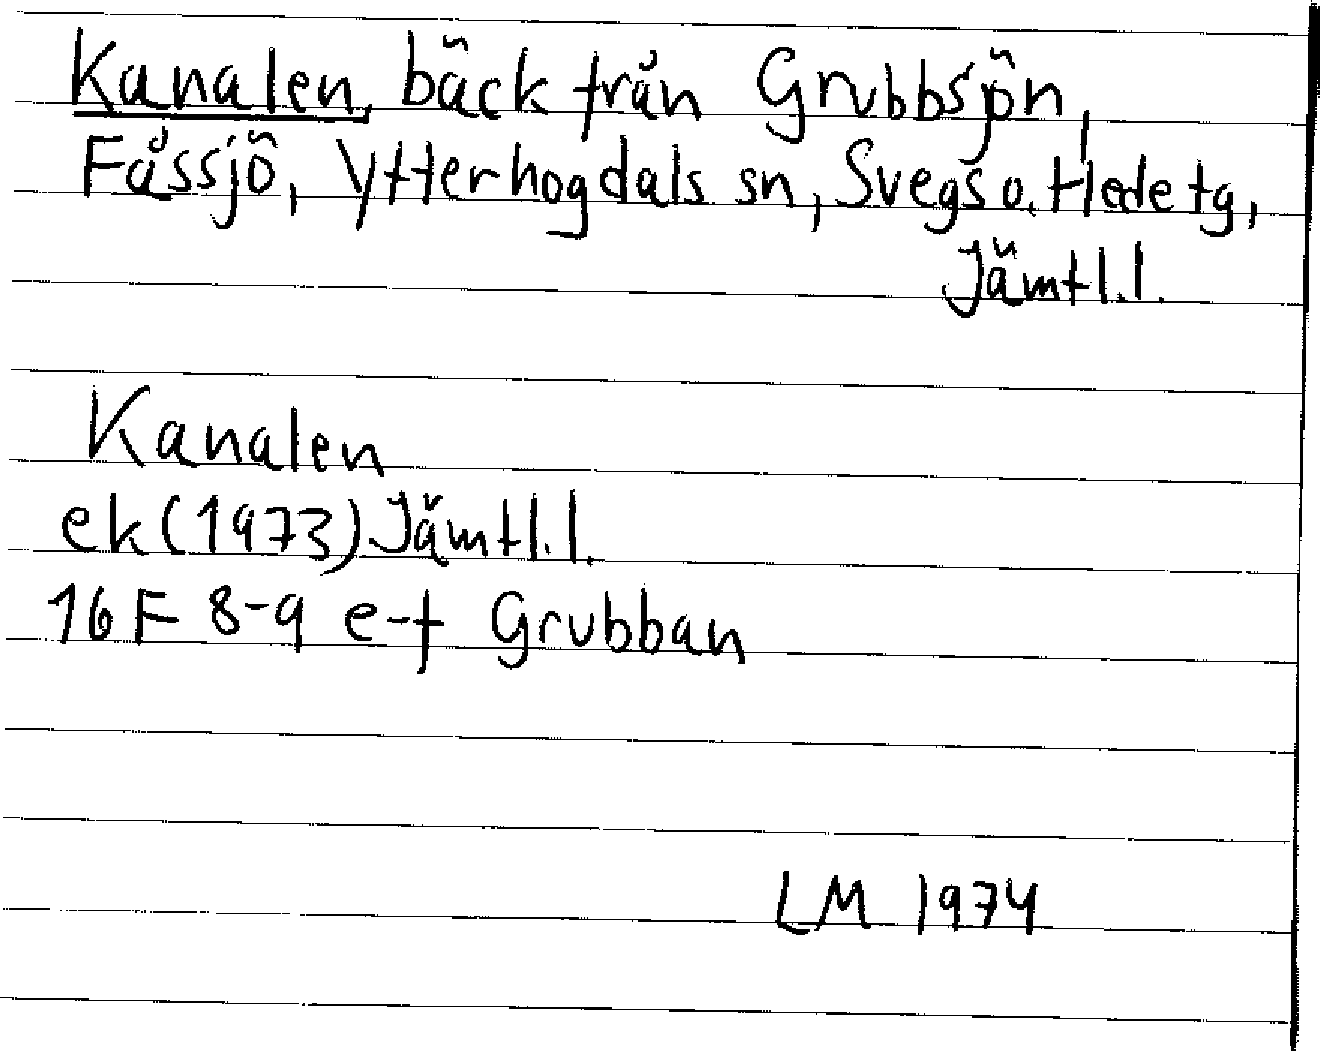 Kanalen, bäck från Grubbsjön,
Fåssjö, Ytterhogdals sn, Svegs o. Hede tg,
Jämtl.l.
Kanalen
ek (1973) Jämtl.l.
16 F 8-9 e-f Grubban
LM 1974